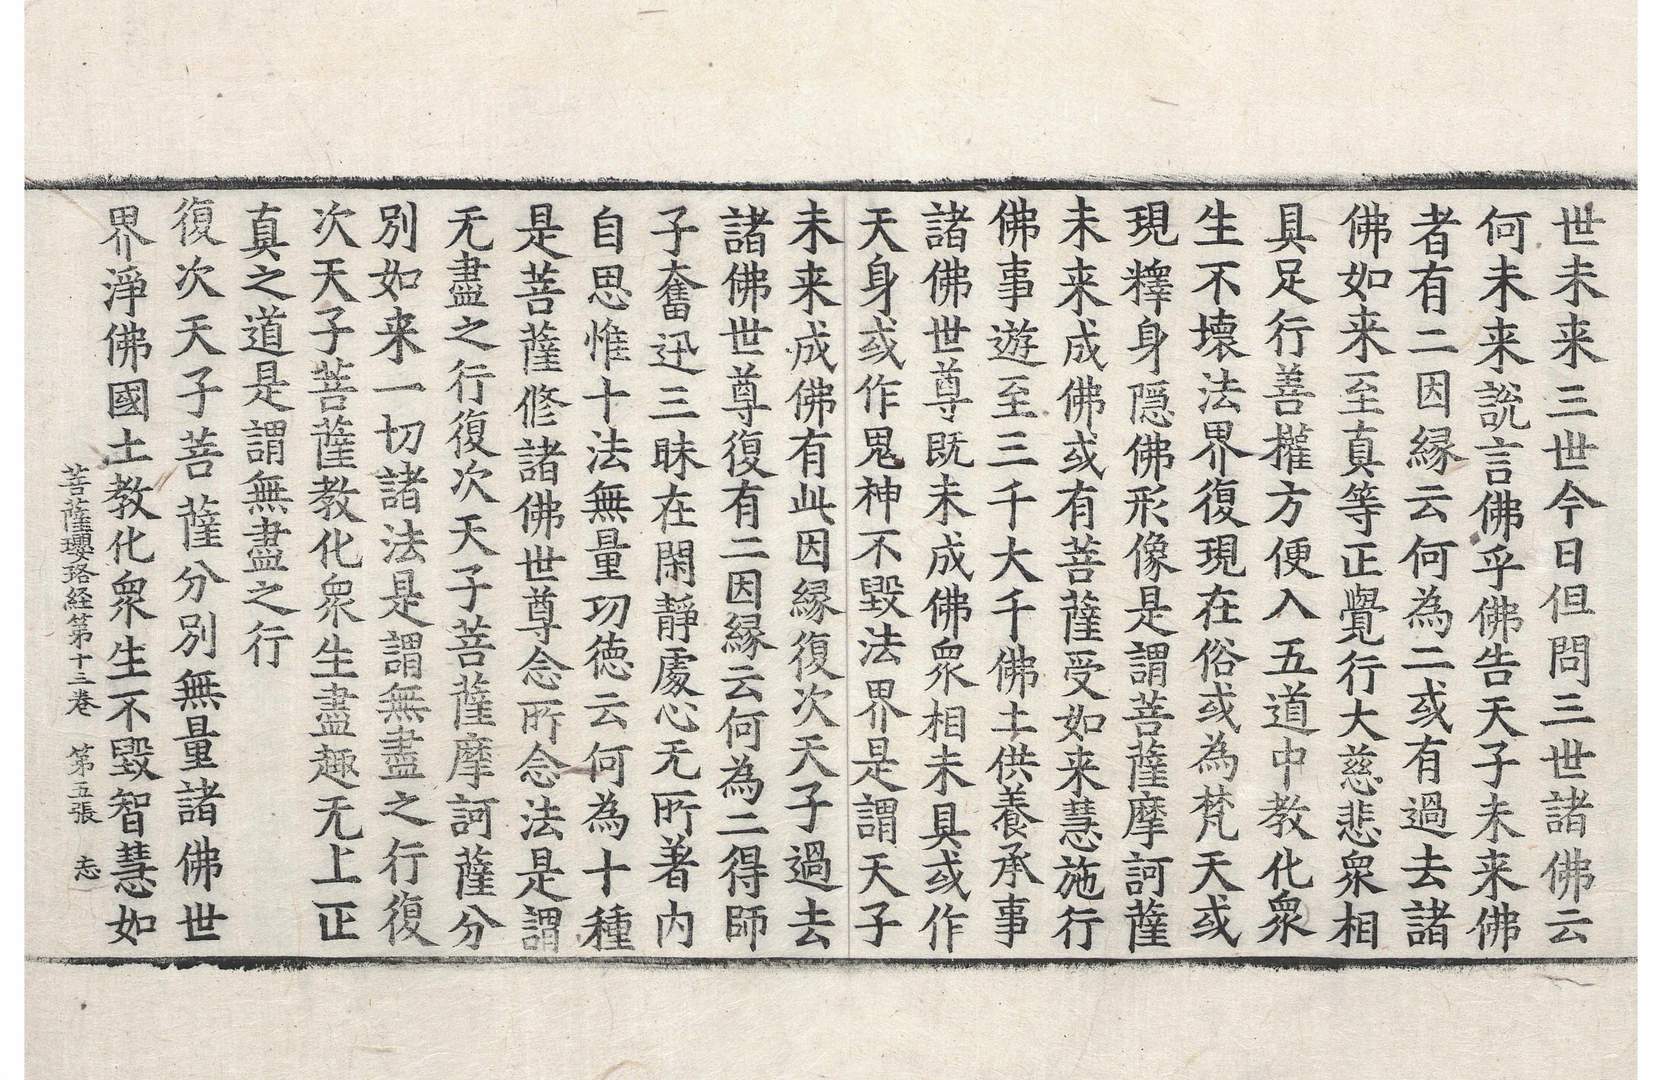 世未来三世今日但問三世諸佛云
何未来說言佛乎佛告天子未来佛
者有二因縁云何為二或有過去諸
佛如来至真等正覺行大慈悲衆相
具足行善權方便入五道中教化衆
生不壞法界復現在俗或為梵天或
現釋身隱佛形像是謂菩薩摩訶薩
未来成佛或有菩薩受如来慧施行
佛事遊至三千大千佛土供養承事
諸佛世尊既未成佛衆相未具或作
天身或作鬼神不毀法界是謂天子
未来成佛有此因縁復次天子過去
諸佛世尊復有二因縁云何為二得師
子奮迅三昧在閑靜處心无所著内
自思惟十法無量功德云何為十種
是菩薩修諸佛世尊念所念法是謂
无盡之行復次天子菩薩摩訶薩分
別如来一切諸法是謂無盡之行復
次天子菩薩教化衆生盡趣无上正
真之道是謂無盡之行
復次天子菩薩分別無量諸佛世
界淨佛國土教化衆生不毀智慧如
菩薩瓔珞経第十三卷　第五張　志